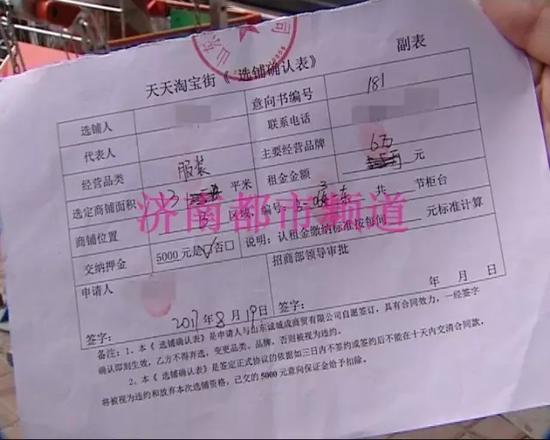 天天淘宝街《选铺确认表》 副表
选铺人 意向书编号 181
代表人 联系电话
经营品类 服装 主要经营品牌
选定商铺面积 3 平米 租金金额 6万 元
商铺位置 B 区域，编号：B- 共 节柜台
交纳押金 5000元是☑否□ 说明：认租金缴纳标准按每间 元标准计算
申请人 招商部领导审批
签字： 2017年8月19日 签字： 年 月 日
备注：1、本《选铺确认表》是申请人与山东诚城成商贸有限公司自愿签订，具有合同效力，一经签字
确认即刻生效，乙方不得弃选，变更品类、品牌，否则被视为违约。
2、本《选铺确认表》是签定正式协议的依据如三日内不签约或签约后不能在十天内交清合同款，
将被视为违约和放弃本次选铺资格，已交的5000元意向保证金给予扣除。
济南都市频道